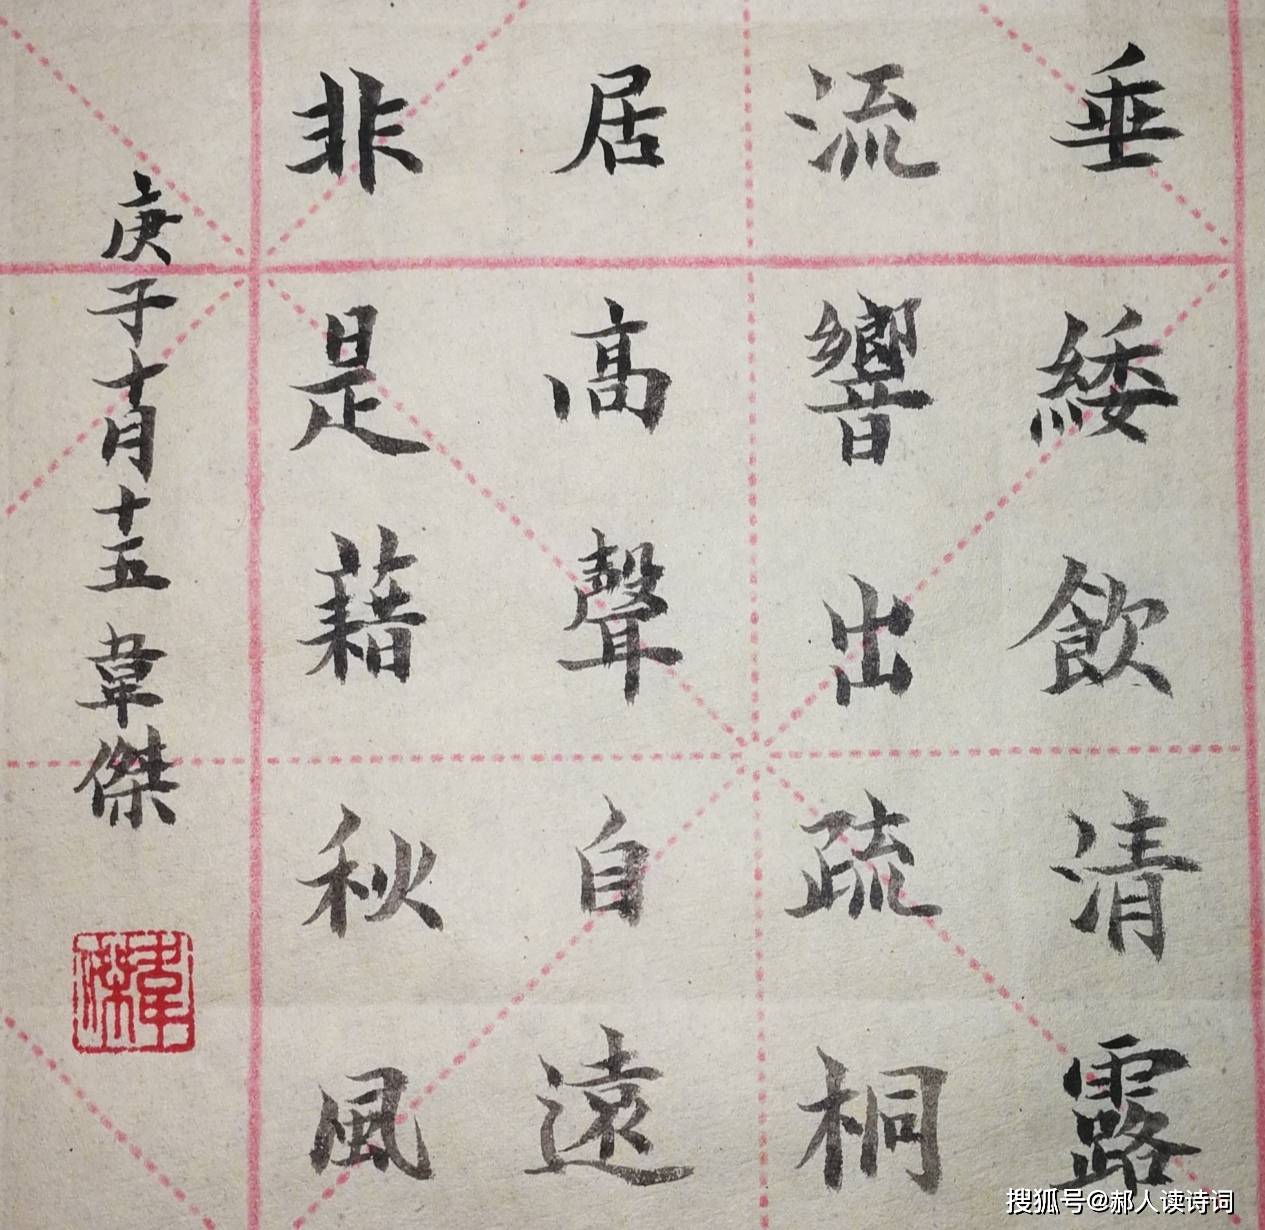 垂緌飲清露
流響出疏桐
居高聲自遠
非是藉秋風
庚子十月十五韋傑
韋傑
搜狐号@郝人读诗词